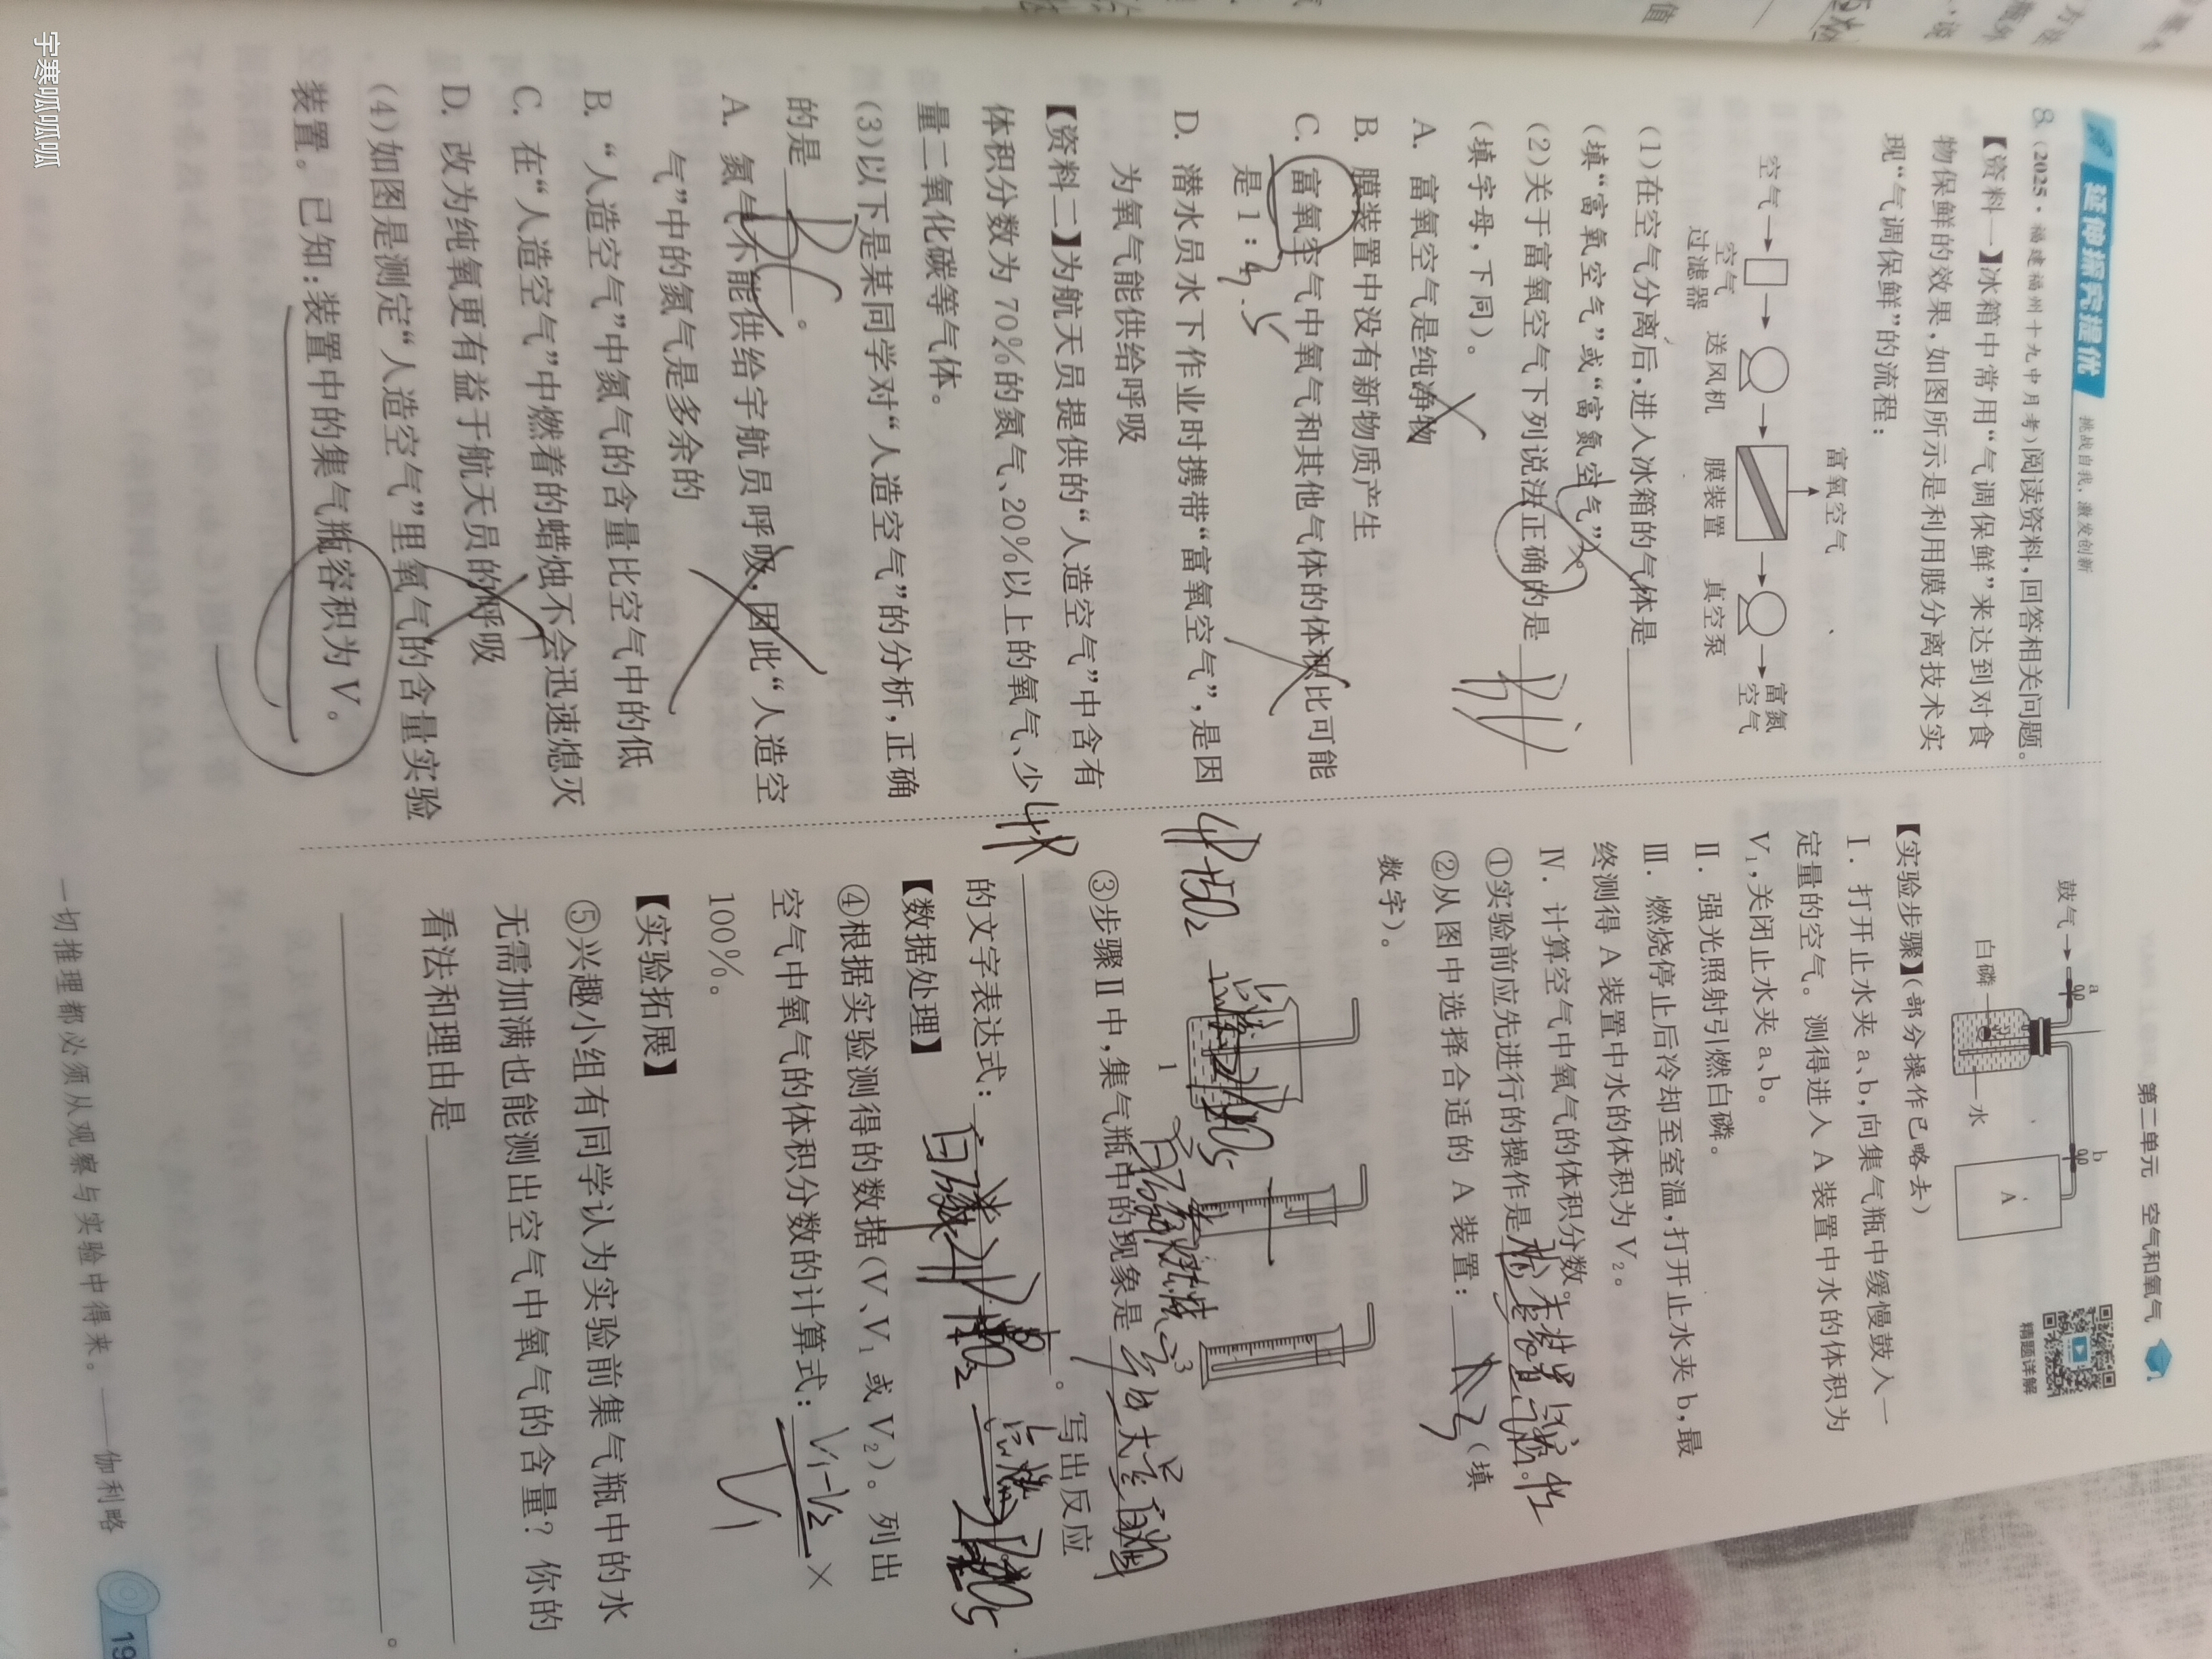 第二单元 空气和氧气
精题详解
延伸探究提优
挑战自我,激发创新
8.(2025·福建福州十九中月考)阅读资料,回答相关问题。
【资料一】冰箱中常用“气调保鲜”来达到对食
物保鲜的效果,如图所示是利用膜分离技术实
现“气调保鲜”的流程:
富氧空气
空气
富氮
空气
空气
过滤器
送风机
膜装置
真空泵
(1)在空气分离后,进入冰箱的气体是
(填“富氧空气”或“富氮空气”)。
(2)关于富氧空气下列说法正确的是
(填字母,下同)。
A. 富氧空气是纯净物
B. 膜装置中没有新物质产生
C. 富氧空气中氧气和其他气体的体积比可能
是1:4.5
D. 潜水员水下作业时携带“富氧空气”,是因
为氧气能供给呼吸
【资料二】为航天员提供的“人造空气”中含有
体积分数为70%的氮气、20%以上的氧气、少
量二氧化碳等气体。
(3)以下是某同学对“人造空气”的分析,正确
的是 BC 。
A. 氮气不能供给宇航员呼吸,因此“人造空
气”中的氮气是多余的
B. “人造空气”中氮气的含量比空气中的低
C. 在“人造空气”中燃着的蜡烛不会迅速熄灭
D. 改为纯氧更有益于航天员的呼吸
(4)如图是测定“人造空气”里氧气的含量实验
装置。已知:装置中的集气瓶容积为V。
鼓气
a
b
白磷
水
A
【实验步骤】(部分操作已略去)
Ⅰ. 打开止水夹a、b,向集气瓶中缓慢鼓入一
定量的空气。测得进入A装置中水的体积为
V₁,关闭止水夹a、b。
Ⅱ. 强光照射引燃白磷。
Ⅲ. 燃烧停止后冷却至室温,打开止水夹b,最
终测得A装置中水的体积为V₂。
Ⅳ. 计算空气中氧气的体积分数。
①实验前应先进行的操作是 检查装置气密性 。
②从图中选择合适的A装置: 3 (填
数字)。
1
3
③步骤Ⅱ中,集气瓶中的现象是
白磷燃烧
。写出反应
的文字表达式:
点燃
【数据处理】
④根据实验测得的数据(V、V₁或V₂)。列出
空气中氧气的体积分数的计算式: V₁-V₂ ×
V₁
100%。
【实验拓展】
⑤兴趣小组有同学认为实验前集气瓶中的水
无需加满也能测出空气中氧气的含量?你的
看法和理由是
。
一切推理都必须从观察与实验中得来。——伽利略
19
宇寒呱呱呱